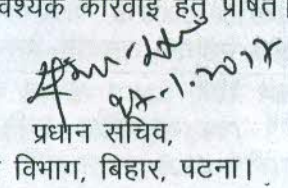 वश्यक कार्रवाई हेतु प्रेषित।
प्रधान सचिव,
विभाग, बिहार, पटना।